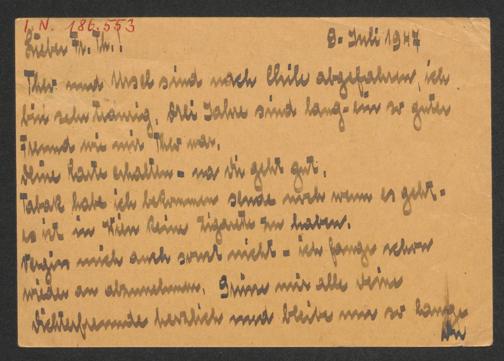 I. N. 186.553
Lieber Fr. Th.! 9. Juli 1947
Ther und Ursel sind nach Chile abgefahren, ich
bin sehr traurig. Drei Jahre sind lang - ein so guter
Freund wie mir Ther war.
Deine Karte erhalten - na Dir geht gut.
Tabak habe ich bekommen sende noch wenn es geht -
es ist in Wien keine Zigarette zu haben.
Vergiss mich auch sonst nicht - ich fange schon
wieder an abzunehmen. Grüsse mir alle deine
Dichterfreunde herzlich und bleibe nur so lange